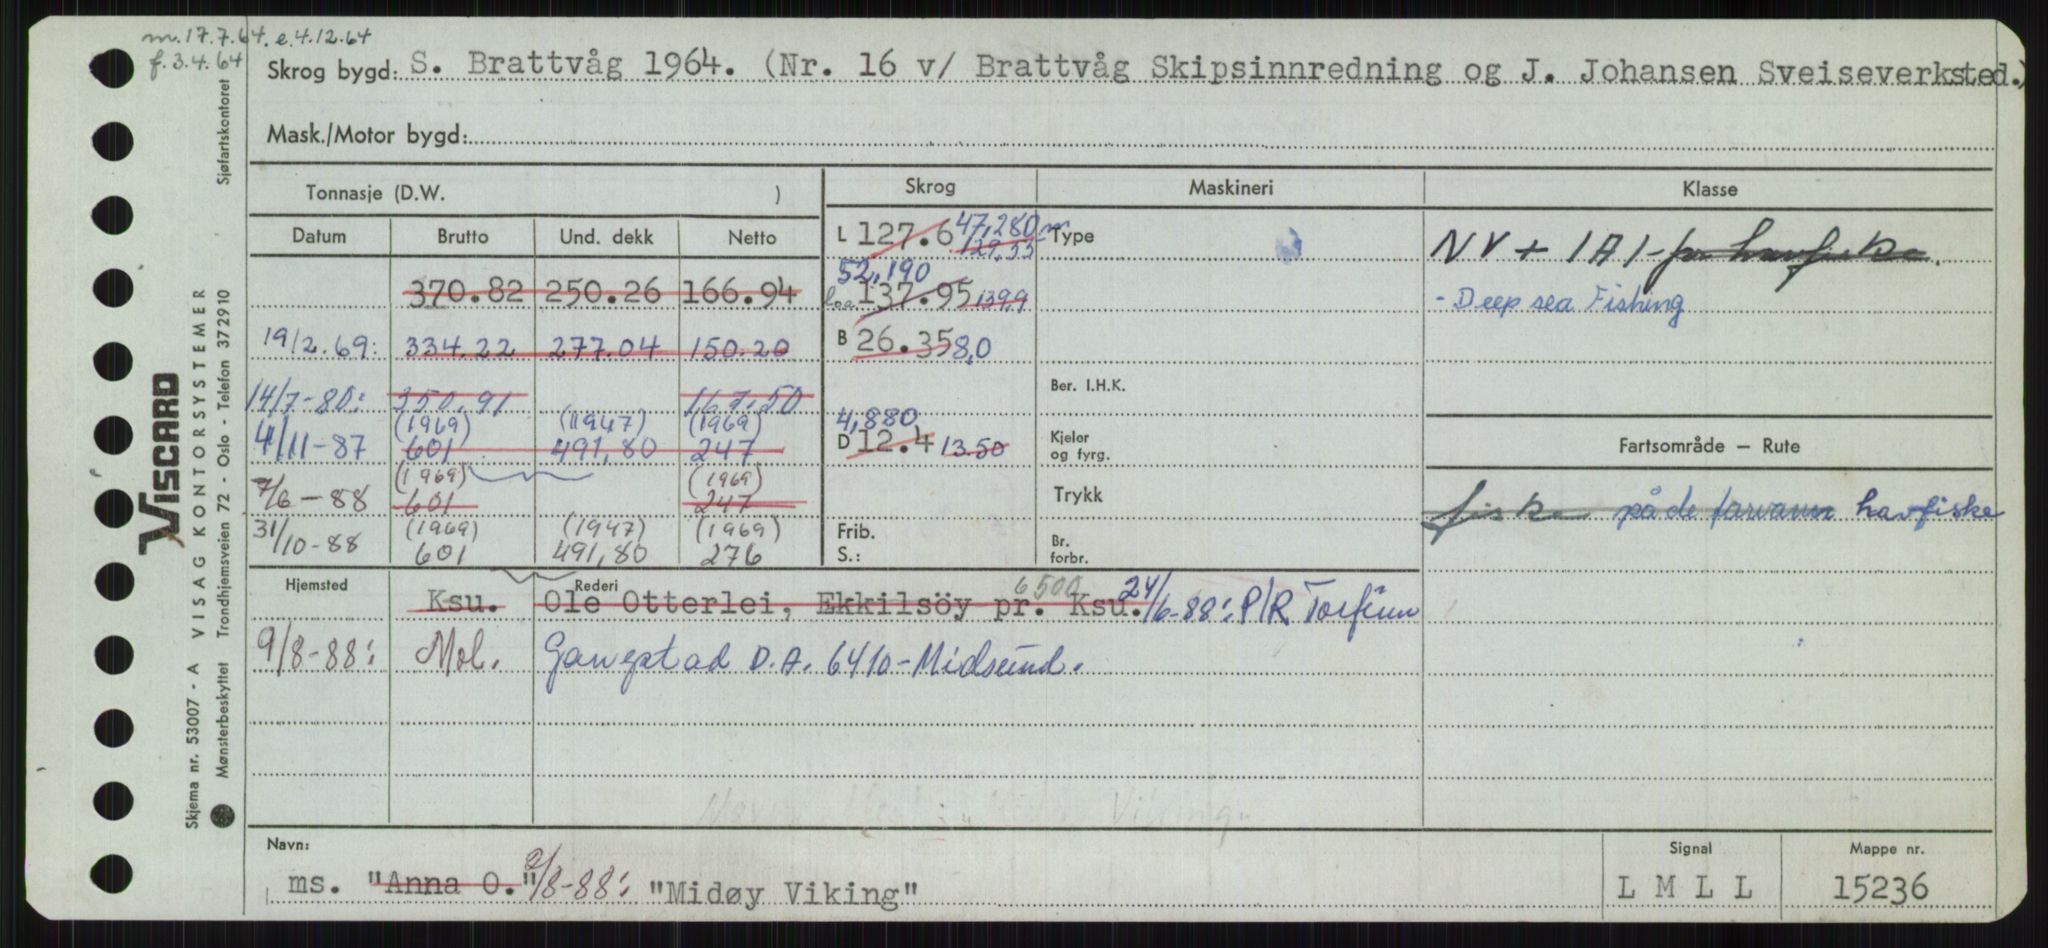 m. 17.7.64. e.4.12.64
f. 3.4.64
Skrog bygd: S. Brattvåg 1964. (Nr. 16 v/ Brattvåg Skipsinnredning og J. Johansen Sveiseverksted.)
Mask./Motor bygd:
Tonnasje (D.W. )
Skrog Maskineri Klasse
Datum Brutto Und. dekk Netto
L 127.6 47,280 m 129,55
Type
NV + 1A1 - for havfiske.
52,190
370.82 250.26 166.94
loa 137.95 139,9
- Deep sea Fishing
19/2.69: 334.22 277.04 150.20
B 26.35 8,0
14/7-80: 350,91 167,50
Ber. I.H.K.
(1969) (1947) (1969)
4/11-87 601 491,80 247
4,880
D 12.4 13.50
Kjeler
og fyrg.
Fartsområde — Rute
(1969) (1969)
7/6-88 601 247
Trykk
fiske på de farvann havfiske
(1969) (1947) (1969)
31/10-88 601 491,80 276
Frib.
S.:
Br.
forbr.
Hjemsted Rederi
Ksu. Ole Otterlei, Ekkilsöy pr. 6500 Ksu. 24/6-88: P/R Torfinn
9/8-88: Mol. Gangstad D.A. 6410-Midsund.
Viking"
Navn:
ms. "Anna O." 9/8-88: "Midøy Viking"
Signal
L M L L
Mappe nr.
15236
Skjema nr. 53007 - A VISAG KONTORSYSTEMER
Mønsterbeskyttet Trondhjemsveien 72 - Oslo - Telefon 372910 Sjøfartskontoret
VISCARD